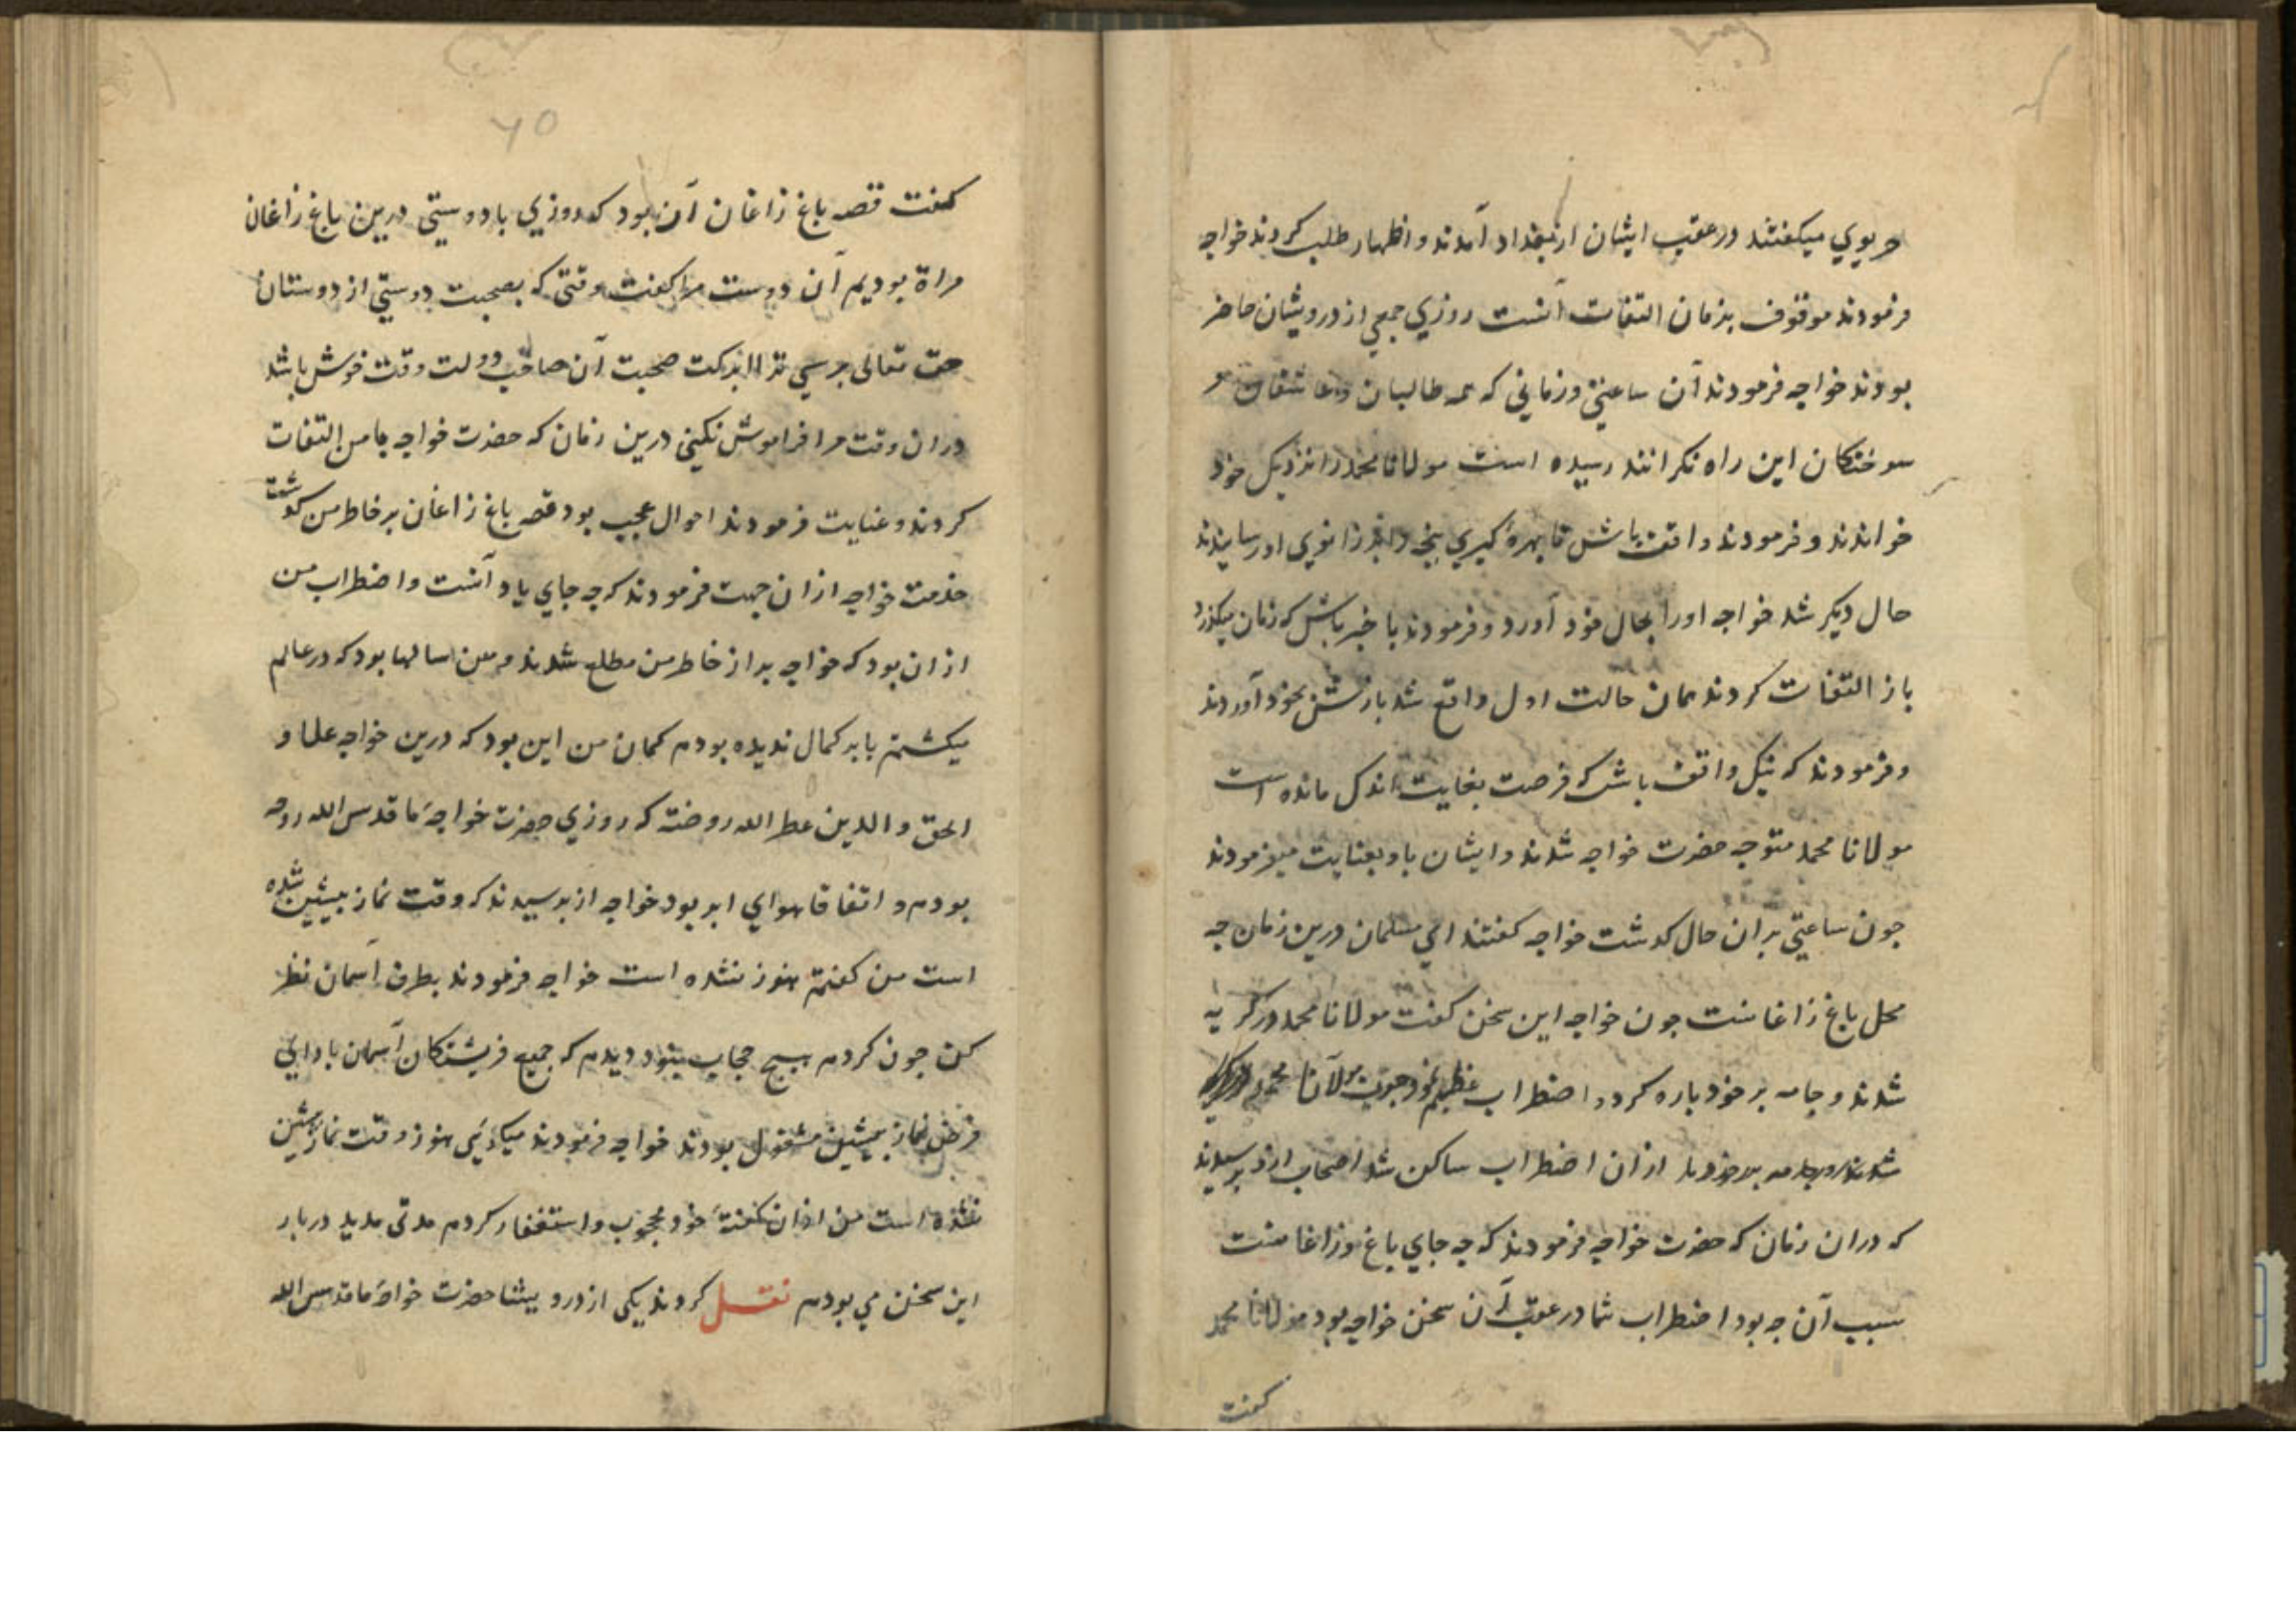 هریوی میکفتند در عقب ایشان از بغداد آمدند و اظهار طلب کردند خواجه
فرمودند موقوف بزمان التفات آنست روزی جمعی از درویشان حاضر
بودند خواجه فرمودند آن ساعتی و زمانی که همه طالبان و عاشقان و
سوختکان این راه نکرانند رسیده است مولانا محمد را نزدیک خود
خواندند و فرمودند واقف باش تا بهره کیری پنجه زانوی او رسانیدند
حال دیکر شد خواجه او را بحال خود آورد و فرمودند با خبر باش که زمان میکذرد
باز التفات کردند همان حالت اول واقع شد بازش بخود آوردند
و فرمودند که نیک واقف باش که فرصت بغایت اندک مانده است
مولانا محمد متوجه حضرت خواجه شدند و ایشان باو بعنایت میفرمودند
جون ساعتی بران حال کدشت خواجه کفتند ای مسلمان درین زمان جه
محل باغ زاغانست جون خواجه این سخن کفت مولانا محمد در کریه
شدند و جامه بر خود باره کرد و اضطراب عظیم نمود جون مولانا محمد
شدند و جامه بر خود باز از ان اضطراب ساکن شد اصحاب ازو برسیدند
که دران زمان که حضرت خواجه فرمودند که جه جای باغ زاغانست
سبب آن جه بود اضطراب شما در عقب آن سخن خواجه بود مولانا محمد
کفت
۷۵
کفت قصه باغ زاغان آن بود که روزی با دوستی درین باغ زاغان
هراة بودیم آن دوست مرا کفت وقتی که بصحبت دوستی از دوستان
حق تعالی برسی ترا از برکت صحبت آن صاحب دولت وقت خوش باشد
دران وقت مرا فراموش نکنی درین زمان که حضرت خواجه بامن التفات
کردند و عنایت فرمودند احوال عجیب بود قصه باغ زاغان بر خاطر من کدشت
خدمت خواجه ازان جهت فرمودند که جه جای یاد آنست و اضطراب من
ازان بود که خواجه بر از خاطر من مطلع شدند و من سالها بود که در عالم
میکشتم بابر کمال ندیده بودم کمان من این بود که درین خواجه علما و
الحق والدین عطر الله روضته که روزی حضرت خواجهٔ ما قدس الله روحه
بودم و اتفاقا هوای ابر بود خواجه از برسیدند که وقت نماز بیشین شده
است من کفتم هنوز نشده است خواجه فرمودند بطرف آسمان نظر
کن جون کردم هیج حجاب نبود دیدم که جمیع فریشتکان آسمان بادای
فرض نماز بیشین مشغول بودند خواجه فرمودند میکدیی هنوز وقت نماز بیشین
نشده است من ازان کفتهٔ خود محجوب و استغفار کردم مدتی مدید دربار
این سخن می بودم نقل کردند یکی از درویشا حضرت خواجهٔ ما قدس الله